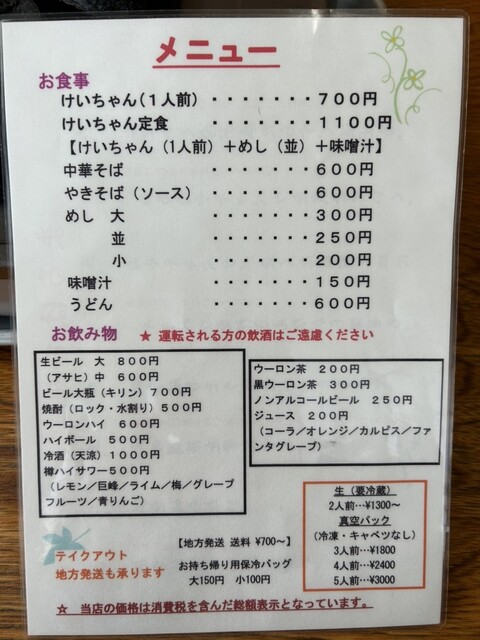 メニュー
お食事
けいちゃん（１人前）・・・・・・・７００円
けいちゃん定食　・・・・・・・１１００円
【けいちゃん（1人前）＋めし（並）＋味噌汁】
中華そば　・・・・・・・６００円
やきそば（ソース）　・・・・・・・６００円
めし　大　・・・・・・・３００円
並　・・・・・・・２５０円
小　・・・・・・・２００円
味噌汁　・・・・・・・１５０円
うどん　・・・・・・・６００円
お飲み物　★ 運転される方の飲酒はご遠慮ください
生ビール　大　８００円
（アサヒ）中　６００円
ビール大瓶（キリン）７００円
焼酎（ロック・水割り）５００円
ウーロンハイ　６００円
ハイボール　５００円
冷酒（天涼）１０００円
樽ハイサワー５００円
（レモン／巨峰／ライム／梅／グレープ
フルーツ／青りんご）
ウーロン茶　２００円
黒ウーロン茶　３００円
ノンアルコールビール　２５０円
ジュース　２００円
（コーラ／オレンジ／カルピス／ファ
ンタグレープ）
テイクアウト
地方発送も承ります
【地方発送　送料 ¥700～】
お持ち帰り用保冷バッグ
大150円　小100円
生（要冷蔵）
2人前…¥1300～
真空パック
（冷凍・キャベツなし）
3人前…¥1800
4人前…¥2400
5人前…¥3000
☆　当店の価格は消費税を含んだ総額表示となっています。